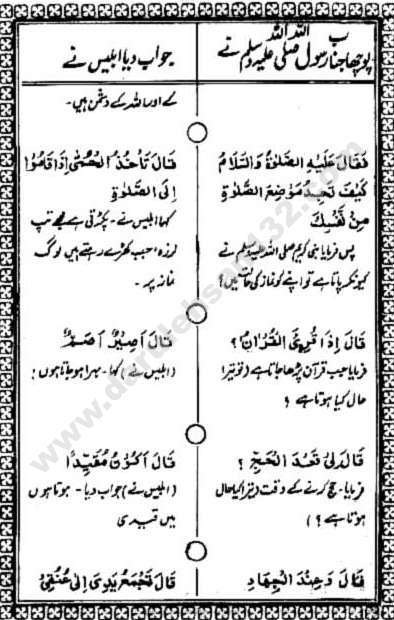 پوچھا جناب رسول اللہ صلی اللہ علیہ وسلم نے
جواب دیا ابلیس نے
کے اور اللہ کے دشمن ہیں۔
فَقَالَ عَلَيْهِ الصَّلَاةُ وَالسَّلَامُ
كَيْفَ تَجِدُ مَوْضِعَ الصَّلَاةِ
مِنْ نَفْسِكَ
پس فرمایا نبی کریم صلی اللہ علیہ وسلم نے
کیونکر پاتا ہے تو اپنے کو نماز کی حالت میں؟
قَالَ تَأْخُذُ الْحُمّٰى اِذَا قَامُوْا
اِلَى الصَّلٰوةِ
کہا ابلیس نے۔ پکڑتی ہے مجھے تپ
لرزہ، جب کھڑے رہتے ہیں لوگ
نماز پر۔
قَالَ اِذَا قُرِئَ الْقُرْاٰنُ؟
فرمایا جب قرآن پڑھا جاتا ہے (تو تیرا
حال کیا ہوتا ہے؟
قَالَ اَصِيْرُ اَصَمَّ
(ابلیس نے) کہا۔ بہرا ہو جاتا ہوں؛
الْحَجِّ؟
فرمایا۔ حج کرنے کے وقت (تیرا کیا حال
ہوتا ہے؟)
قَالَ اَكُوْنُ مُقَيَّدًا
(ابلیس نے) جواب دیا۔ ہوتا ہوں
میں قیدی
قَالَ وَعِنْدَ الْجِهَادِ
قَالَ تُجْمَعُ يَدِىْ اِلٰى عُنُقِىْ